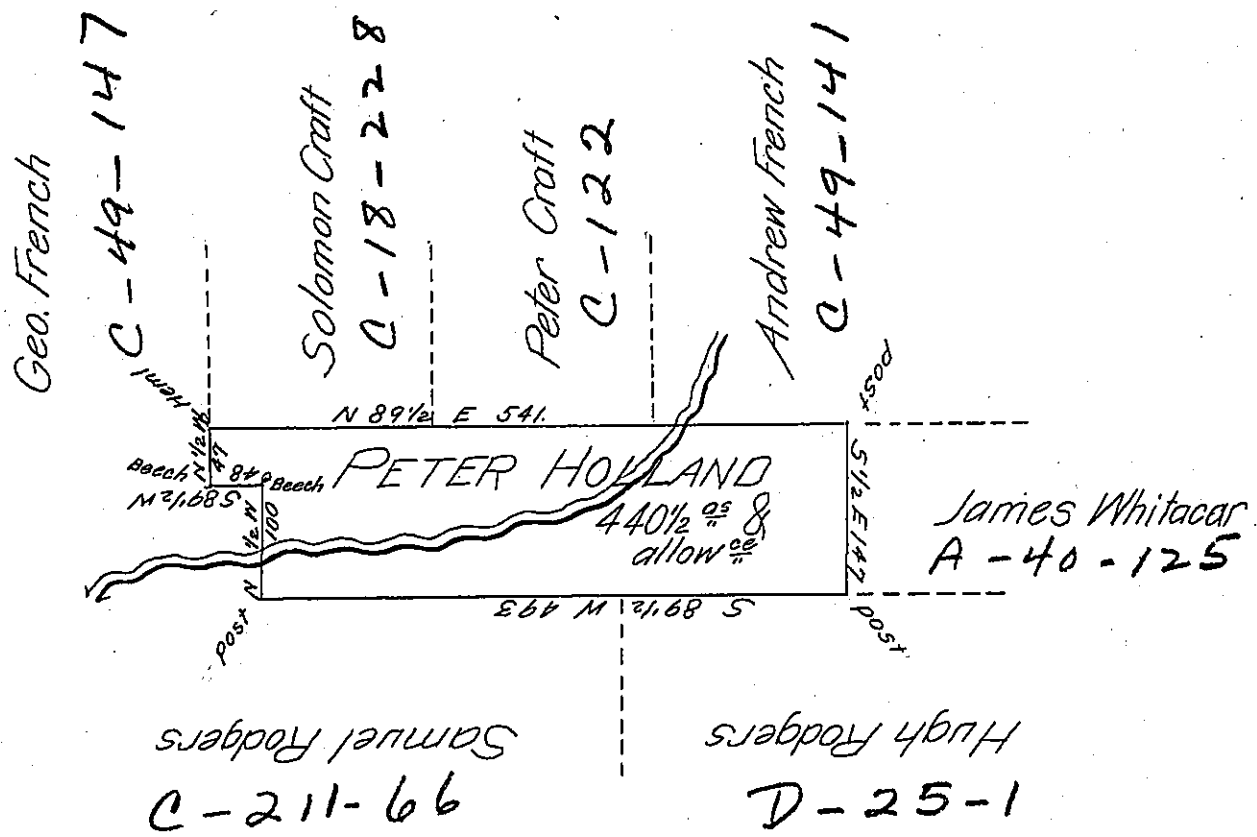 Geo. French
C-49-147
Solomon Craft
C-18-228
Peter Craft
C-122
Andrew French
C-49-141
Heml
post
N 89½ E 541.
N ½ W
47
Beech
48
Beech
S 89½ W
PETER HOLLAND
440½ as &
allow ce
N ½ W
100
S ½ E 147
James Whitacar
A-40-125
post
S 89½ W 493
post
Samuel Rodgers
C-211-66
Hugh Rodgers
D-25-1